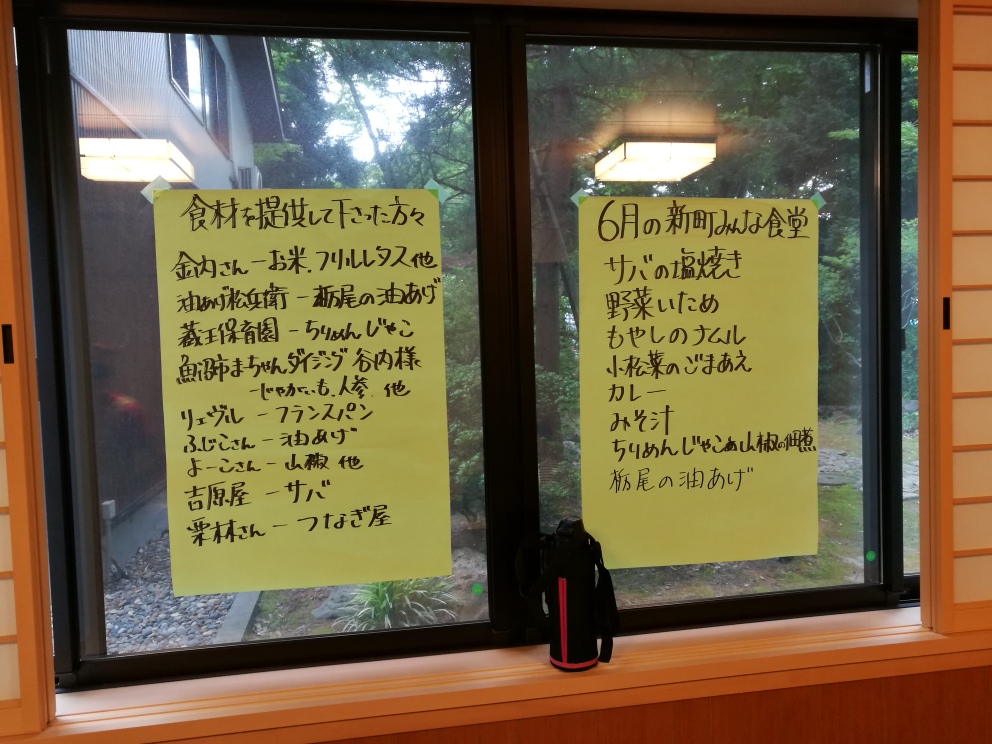 食材を提供して下さった方々
金内さん ー お米.フリルレタス他
油あげ松兵衛 ー 栃尾の油あげ
蔵王保育園 ー ちりめんじゃこ
魚沼姉まちゃんダイジング 谷内様
ーじゃがいも.人参. 他
リェヴル ー フランスパン
ふじこさん ー 油あげ
よーこさん ー 山椒 他
吉原屋 ー サバ
栗林さん ー つなぎ屋
6月の新町みんな食堂
サバの塩焼き
野菜いため
もやしのナムル
小松菜のごまあえ
カレー
みそ汁
ちりめんじゃこ 山椒の佃煮
栃尾の油あげ